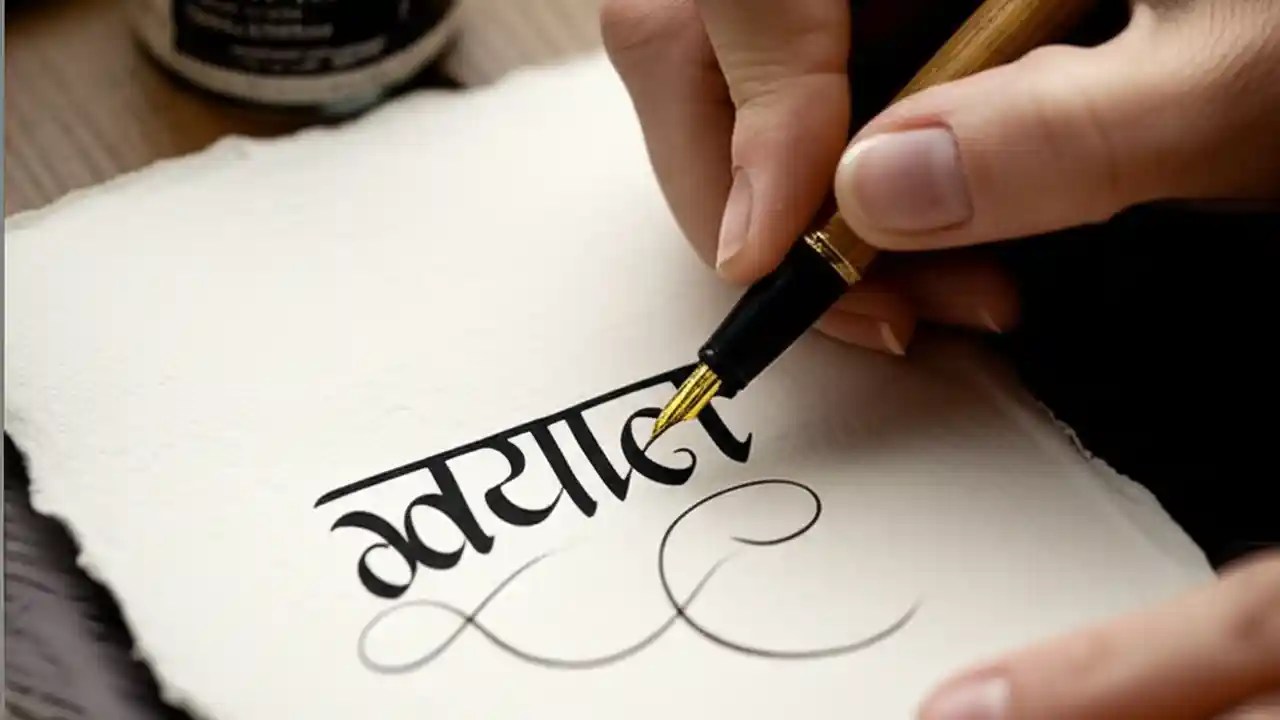 ख्याल